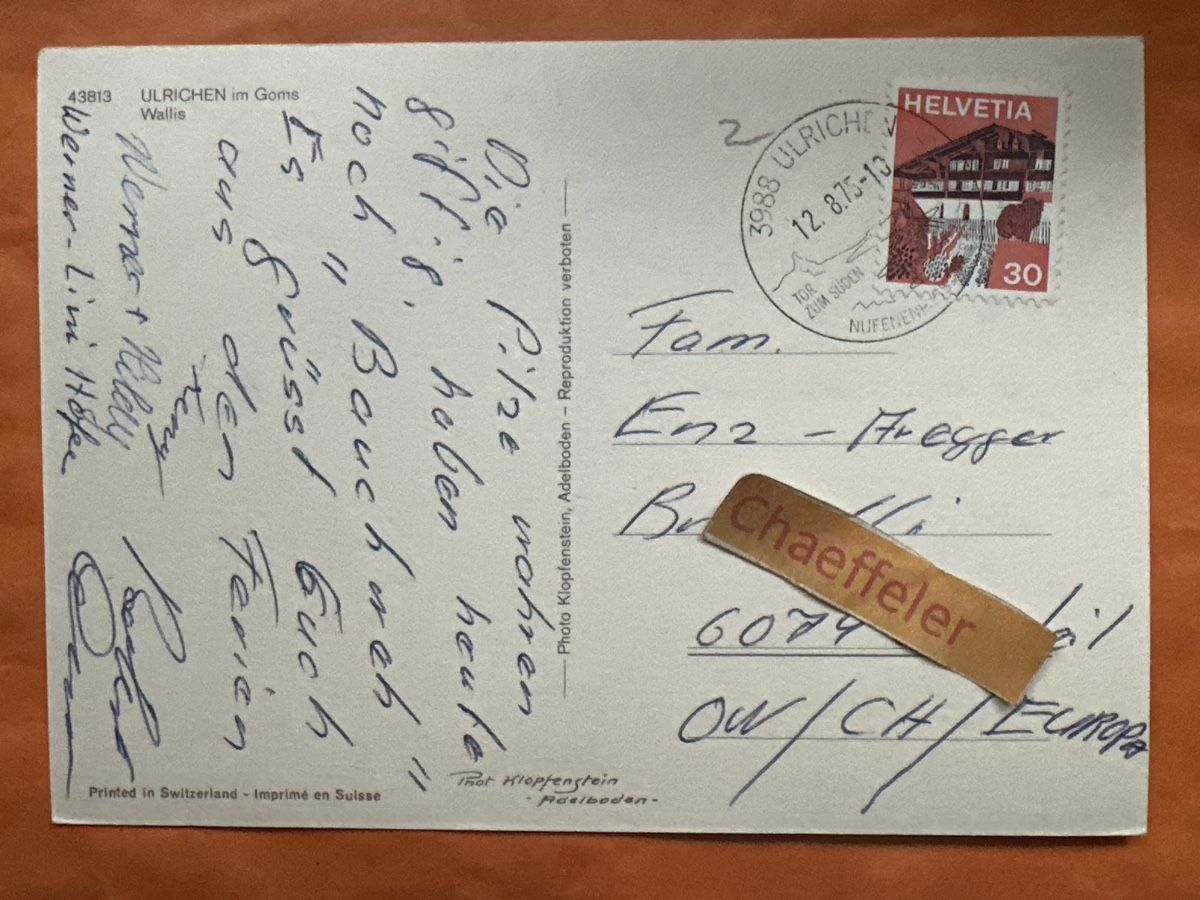 43813 ULRICHEN im Goms
Wallis
Die Pilze wahren
giftig, haben heute
noch "Bauchweh"
Es grüsst Euch
aus den Ferien
Werner + Heidy
Werner-Lini
Printed in Switzerland - Imprimé en Suisse
Photo Klopfenstein, Adelboden - Reproduktion verboten
Phot Klopfenstein
- Adelboden -
2
3988 ULRICHEN
12. 8.75-18
TOR
ZUM SÜDEN
NUFENEN
HELVETIA
30
Fam.
Enz - Aregger
Chaeffeler
6074
OW/CH/EUROPA